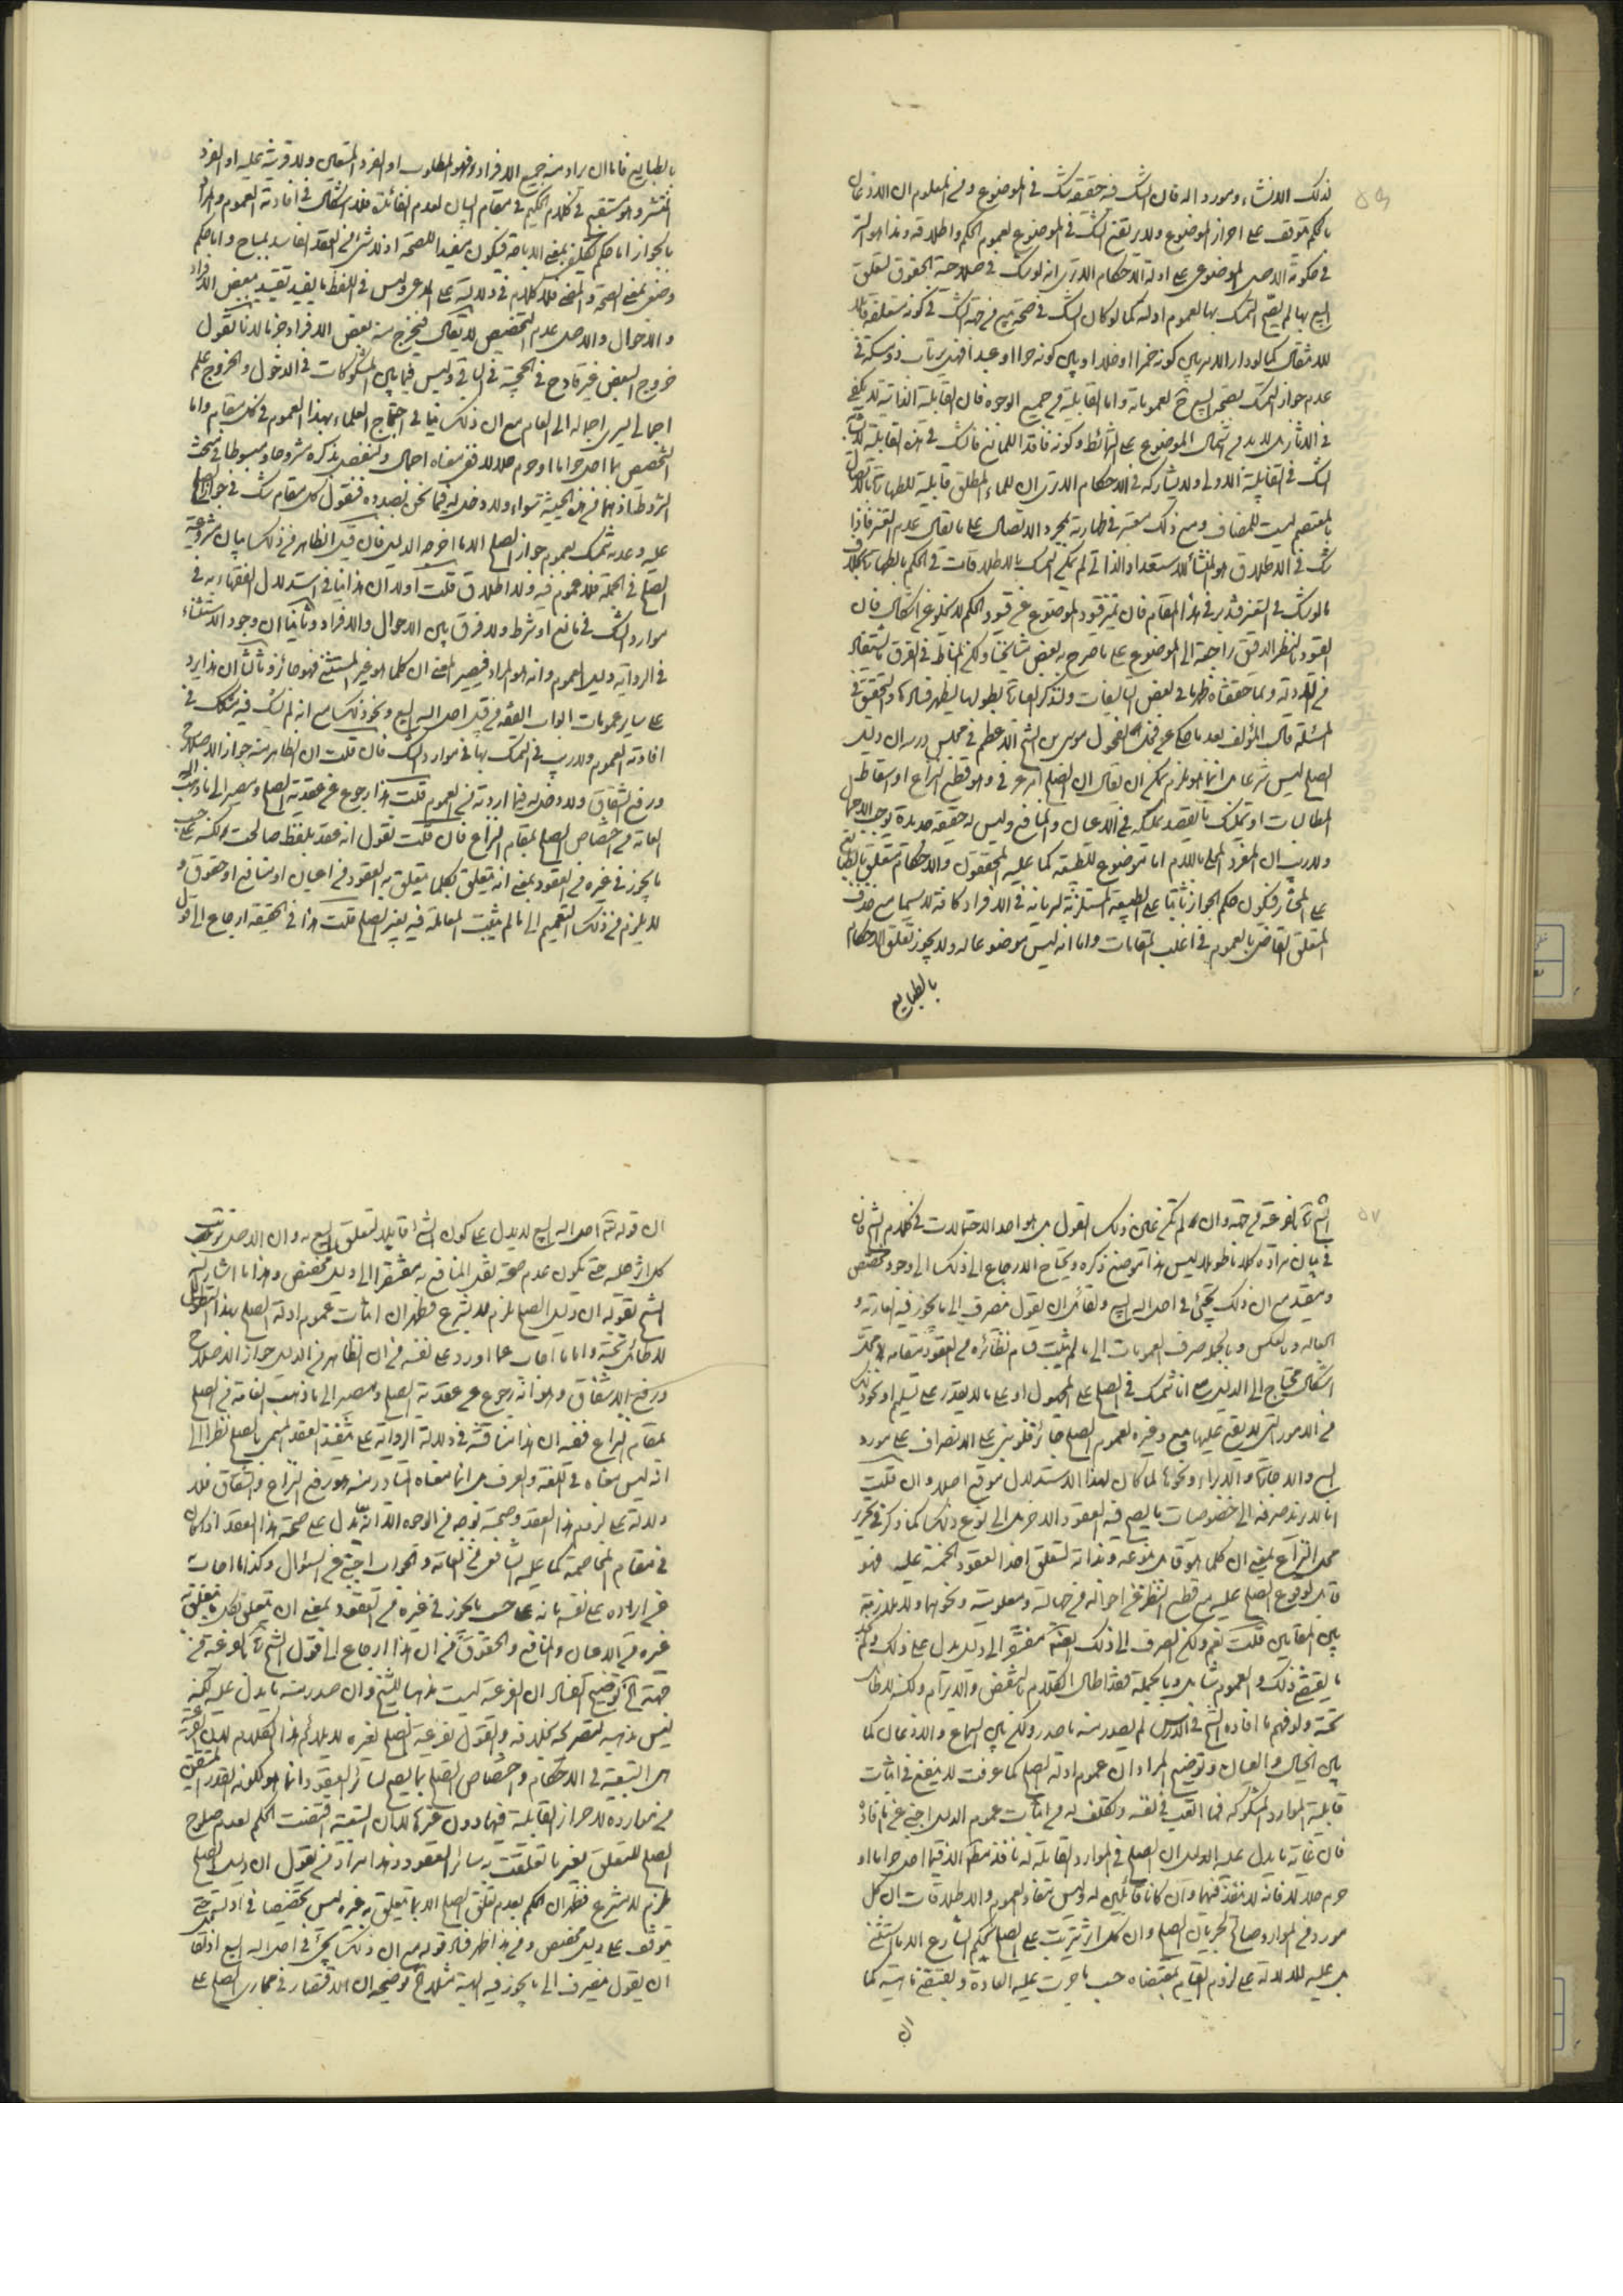 لذلك الانشاء ومورد اله فان الشك فيه حقيقة شك في الموضوع ومن المعلوم ان الاذعان
بالحكم متوقف على احراز الموضوع ولا يرتفع الشك في الموضوع لعموم الحكم واطلاقه وهذا هو السر
في حكومة الاصل الموضوعي على ادلة الاحكام الا ترى انه لو شك في صلاحية الحقوق لتعلق
البيع بها لم يصح التمسك بها لعموم ادلة كما لو كان الشك في صحة بيع من جهة الشك في كونه متعلقه قابلا
للانتقال كما لو دار الامر بين كونه خمرا او خلا او بين كونه حرا او عبدا فهل يرتاب ذو مسكة في
عدم جواز التمسك بصحة البيع ح لعموماته واما القابلية من جميع الوجوه فان القابلية الذاتية لا يكفي
في التأثير بل لا بد من اشتمال الموضوع على الشرائط وكونه فاقدا للمانع فالشك في هذه القابلية
الشك في القابلية الاولى ولا يشاركه في الاحكام الا ترى ان للماء المطلق قابلية للطهارة بالاتصال
بالمعتصم ليست للمضاف ومع ذلك معتبر في طهارته بمجرد الاتصال على ما يقال عدم التغير فاذا
شك في الاطلاق هو المنشأ للاستعداد الذاتي لم يمكن التمسك بالاطلاقات في الحكم بالطهارة بخلاف
ما لو شك في التغير فتدبر في هذا المقام فان تميز قيود الموضوع عن قيود الحكم لا يخلو عن اشكال فان
القيود بالنظر الدقيق راجعة الى الموضوع على ما صرح به بعض مشايخنا ولكن المناط في الفرق ما يستفاد
من الادلة وما حققناه ظهر ما في بعض التأليفات ولنذكر العبارة بطولها ليظهر فسادها والتحقيق في
المسئلة قال المؤلف بعد ما حكى عن فحل الفحول موسى بن الشيخ الاعظم في مجلس درسه ان دليل
الصلح ليس شرعا وانما هو ملزم يمكن ان يقال ان الصلح امر عرفي وهو قطع النزاع او اسقاط
المطالبات او تمليك ما يقصد تمليكه في الاعيان والمنافع وليس له حقيقة جديدة توجب الاجمال
ولا ريب ان المفرد المحلى باللام اما موضوع للطبيعة كما عليه المحققون والاحكام متعلق بالطبايع
على المختار فيكون حكم الجواز ثابتا على الطبيعة المستلزمة لسريانه في الافراد كافة لا سيما مع حذف
المتعلق القاضي بالعموم في اغلب المقامات واما انه ليس موضوعا له ولا يجوز تعلق الاحكام
بالطبايع
بالطبايع فاما ان يراد منه جميع الافراد فهو المطلوب او الفرد المتعين ولا قرينة عليه او الفرد
المنتشر وهو مستقيم في كلام الحكيم في مقام البيان لعدم الفائدة فلا اشكال في افادته العموم والمراد
بالجواز اما حكم تكليفي بمعنى الاباحة فيكون مفيدا للصحة اذ لا شئ من العقد الفاسد بمباح واما حكم
وضعي بمعنى الصحة والمضي فلا كلام في دلالته على المدعى وليس في اللفظ ما يفيد تقييد ببعض الافراد
والاحوال والاصل عدم التخصيص لا يقال فيخرج منه بعض الافراد جزما لانا نقول
خروج البعض غير قادح في الحجية في الباقي وليس فيما بين المشكوكات في الدخول والخروج علم
اجمالي ليسري اجماله الى العام مع ان ذلك ينافي احتجاج العلماء بهذا العموم في كل مقام واما
التخصيص بما احل حراما او حرم حلالا فمعناه اجمالا ولنفصل بذكره مشروحا ومبسوطا في مبحث
الشروط اذ هما من هذه الحيثية سواء ولا دخل له فيما نحن بصدده فنقول كل مقام شك في جواز الصلح
عليه وعدمه تمسك بعموم جواز الصلح الا ما اخرجه الدليل فان قيل الظاهر من ذلك بيان مشروعية
الصلح في الجملة فلا عموم فيه ولا اطلاق قلت اولا ان هذا ينافي استدلال الفقهاء به في
موارد الشك في مانع او شرط ولا فرق بين الاحوال والافراد وثانيا ان وجود الاستثناء
في الرواية دليل العموم وانه هو المراد فيصير المعنى ان كلما هو غير المستثنى فهو جائز وثالثا ان هذا يرد
على ساير عمومات ابواب الفقه من قبيل احل الله البيع ونحو ذلك مع انه لم يشك فيه مشكك في
افادته العموم ولا ريب في التمسك بها في موارد الشك فان قلت ان الظاهر منه جواز الاصلاح
ورفع الشقاق ولا دخل له فيما اردته من العموم قلت هذا رجوع عن عقدية الصلح ومصير الى ما ذهب اليه
العامة من اختصاص الصلح بمقام النزاع فان قلت نقول انه عقد بلفظ صالحت ولكنه على حسب
ما يجوز في غيره من العقود بمعنى انه يتعلق بكلما يتعلق به العقود من اعيان او منافع او حقوق و
لا يلزم من ذلك التعميم الى ما لم يثبت المعاملة فيه بغير الصلح قلت هذا في الحقيقة ارجاع الى قول
الشيخ بالفرعية من جهة وان لم تكن من ذلك القول بل هو احد الاحتمالات في كلام الشيخ فان
في بيان مراده كلاما طويلا ليس هذا موضع ذكره ويحتاج الارجاع الى ذلك الى وجود مخصص
ومقيد مع ان ذلك يجئ في احل الله البيع ولقائل ان يقول منصرف الى ما يجوز فيه العارية و
الجعالة وبالعكس وبالجملة صرف العمومات الى ما لم يثبت قيام نظائره من العقود مقامه محل
اشكال محتاج الى الدليل مع انا نتمسك في الصلح على المجهول او على ما لا يقدر على تسليمه ونحو ذلك
من الامور التي لا يقع عليها بيع وغيره لعموم الصلح جائز فلو بني على الانصراف على مورد
البيع والاجارة والابراء ونحوها لما كان لهذا الاستدلال موقع اصلا وان قلت
انا لا نريد صرفه الى خصوصيات ما يصح فيه العقود الاخر بل الى نوع ذلك كما ذكر في تحرير
محل النزاع بمعنى ان كلما هو قابل بنوعه وذاته لتعلق احد العقود الخمسة عليه فهو
قابل لوقوع الصلح عليه مع قطع النظر عن احواله من جهالة ومعلومية ونحوهما ولا ملازمة
بين المقامين قلت نعم ولكن الصرف الى ذلك ايضا مفتقر الى دليل يدل على ذلك ولم نجد
ما يقتضي ذلك والعموم شامل وبالجملة فقد اطال الكلام بالنقض والابرام ولكنه لا طائل
تحته ولو فهم ما افاده الشيخ في الدرس لم يصدر منه ما صدر ولكن بين السماع والاذعان كما
بين الخيال والعيان وتوضيح المراد ان عموم ادلة الصلح كما عرفت لا ينفع في اثبات
قابلية الموارد المشكوكة فما اتعب في نفسه وتكلف له من اثبات عموم الدليل اجنبي عن ما افاده
فان غاية ما يدل عليه الدليل ان الصلح في الموارد القابلة له نافذ مطلقا الا فيما احل حراما او
حرم حلالا فانه لا ينفذ فيهما وان كانا قابلين له وليس مفاد العموم والاطلاقات ان كل
مورد من الموارد صالح لجريان الصلح وان كل اثر يترتب على الصلح بحكم الشارع الا ما استثني
بل عليه للادلة على لزوم القيام بمقتضاه حسب ما جرت عليه العادة ويقتضيه ماهيته كما
ان
ان قوله تعالى احل الله البيع لا يدل على كون الشئ قابلا لتعلق البيع به وان الاصل ترتب
كل اثر عليه حتى يكون عدم صحة نقل المنافع به مفتقرا الى دليل مخصص وهذا ما اشار اليه
الشيخ بقوله ان دليل الصلح ملزم لا مشرع فظهر ان اثبات عموم ادلة الصلح بهذا التطويل
لا طائل تحته واما ما اجاب عما اورد على نفسه من ان الظاهر من الدليل جواز الاصلاح
ورفع الشقاق وهو انه رجوع عن عقدية الصلح ومصير الى ما ذهب العامة من الصلح
بمقام النزاع ففيه ان هذا مناقشة في دلالة الرواية على تنفيذ العقد المسمى بالصلح نظرا الى
انه ليس معناه في اللغة والعرف بل انما معناه المتبادر منه هو رفع النزاع والشقاق فلا
دلالة على لزوم هذا العقد وصحته بوجه من الوجوه الا انه يدل على صحة هذا العقد اذا كان
في مقام المخاصمة كما عليه الشافعي من العامة والجواب اجنبي عن السؤال وكذا ما اجاب
عن ايراده على نفسه بانه على حسب ما يجوز في غيره من العقود بمعنى ان يتعلق بكل ما يتعلق به
غيره من الاعيان والمنافع والحقوق من ان هذا ارجاع الى قول الشيخ بالفرعية من
جهة الخ توضيح الفساد ان الفرعية ليست مذهبا للشيخ وان صدر منه ما يدل عليه لكنه
ليس مذهبه لتصريحه بخلافه والقول بفرعية الصلح لغيره لا يلائم هذا الكلام لان الفرعية
هي التبعية في الاحكام واختصاص الصلح بما يصح لسائر العقود انما هو لكونه القدر المتيقن
من موارده لاحراز القابلية فيها دون غيرها لا لان التبعية اقتضت الحكم بعدم صلوح
الصلح للتعلق بغير ما تعلقت به سائر العقود وهذا مراد من يقول ان دليل الصلح
ملزم لا مشرع فظهر ان الحكم بعدم تعلق الصلح الا بما يتعلق به غيره ليس تخصيصا في ادلته حتى
يتوقف على دليل مخصص ومن هذا ظهر فساد قوله مع ان ذلك يجئ في احل الله البيع اذ لقائل
ان يقول منصرف الى ما يجوز فيه الهبة مثلا ح توضيحه ان الاقتصار في مجاري الصلح على